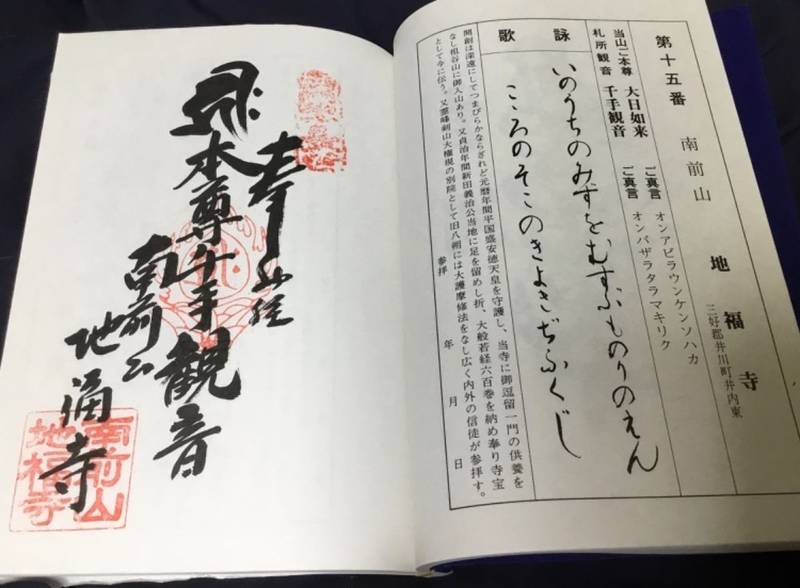 第十五番 南前山 地福寺
三好郡井川町井内東
当山ご本尊 大日如来 ご真言 オンアビラウンケンソハカ
札所観音 千手観音 ご真言 オンバザラタラマキリク
詠歌
いのちのみずをむすぶもりのえん
こころのそこのきよきぢふくじ
開創は深遠にしてつまびらかならざれど元暦年間平国盛安徳天皇を守護し、当寺に御逗留一門の供養を
なし祖谷山に御入山あり。又貞治年間新田義治公当地に足を留めし折、大般若経六百巻を納め奉り寺宝
として今に伝う。又霊峰剣山大権現の別院として旧八朔には大護摩修法をなし広く内外の信徒が参拝す。
参拝 年 月 日
奉
本尊千手観音
南前山
地福寺
南前山
地福寺